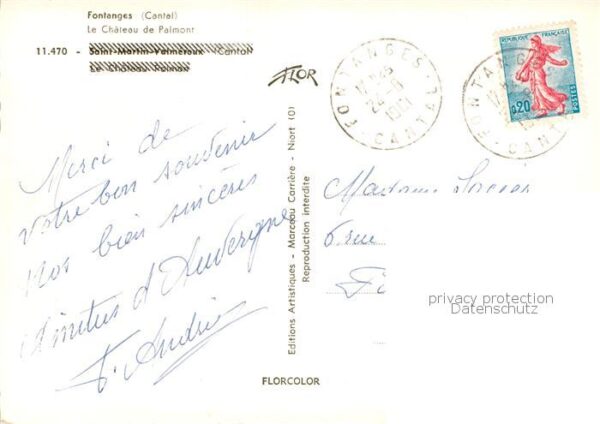 Fontanges (Cantal)
Le Château de Palmont
11.470 - Saint-Martin-Valmeroux (Cantal)
Le Château
FLOR
FONTANGES
12H45
24-6
1961
CANTAL
REPUBLIQUE FRANÇAISE
0,20
POSTES
FONTANGES
CANTAL
Merci de
votre bon souvenir
Nos bien sincères
Amitiés d'Auvergne
Editions Artistiques - Marceau Carrière - Niort (0)
Reproduction interdite
Madame
6 rue
privacy protection
Datenschutz
FLORCOLOR